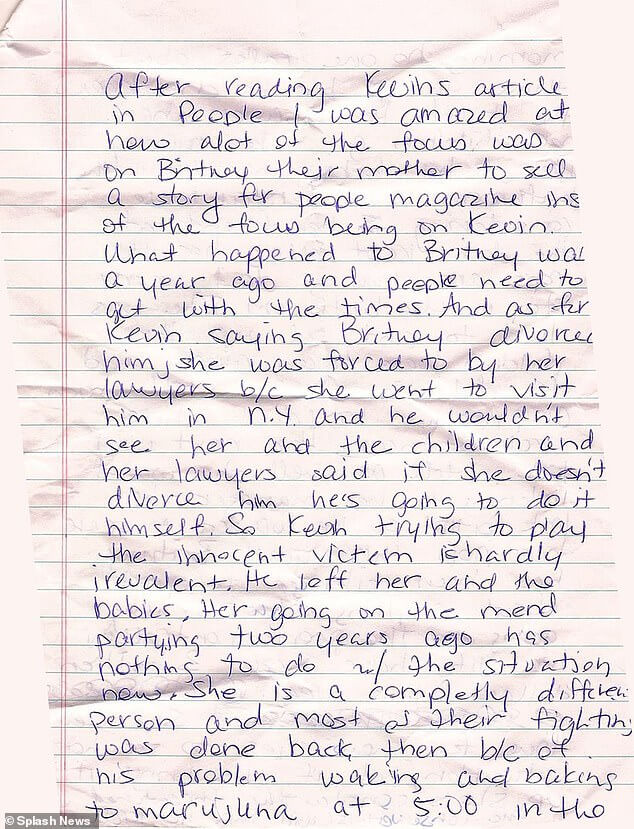 After reading Kevins article
in People I was amazed at
how alot of the focus was
on Britney their mother to sell
a story for people magazine ins
of the focus being on Kevin.
What happened to Britney was
a year ago and people need to
get with the times. And as for
Kevin saying Britney divorce
him, she was forced to by her
lawyers b/c she went to visit
him in N.Y. and he wouldn't
see her and the children and
her lawyers said if she doesn't
divorce him he's going to do it
himself. So Kevin trying to play
the innocent victem is hardly
irevalent. He left her and the
babies. Her going on the mend
partying two years ago has
nothing to do w/ the situation
now. She is a completly differen
person and most of their fighting
was done back then b/c of
his problem waking and baking
to marijuna at 5:00 in the
© Splash News